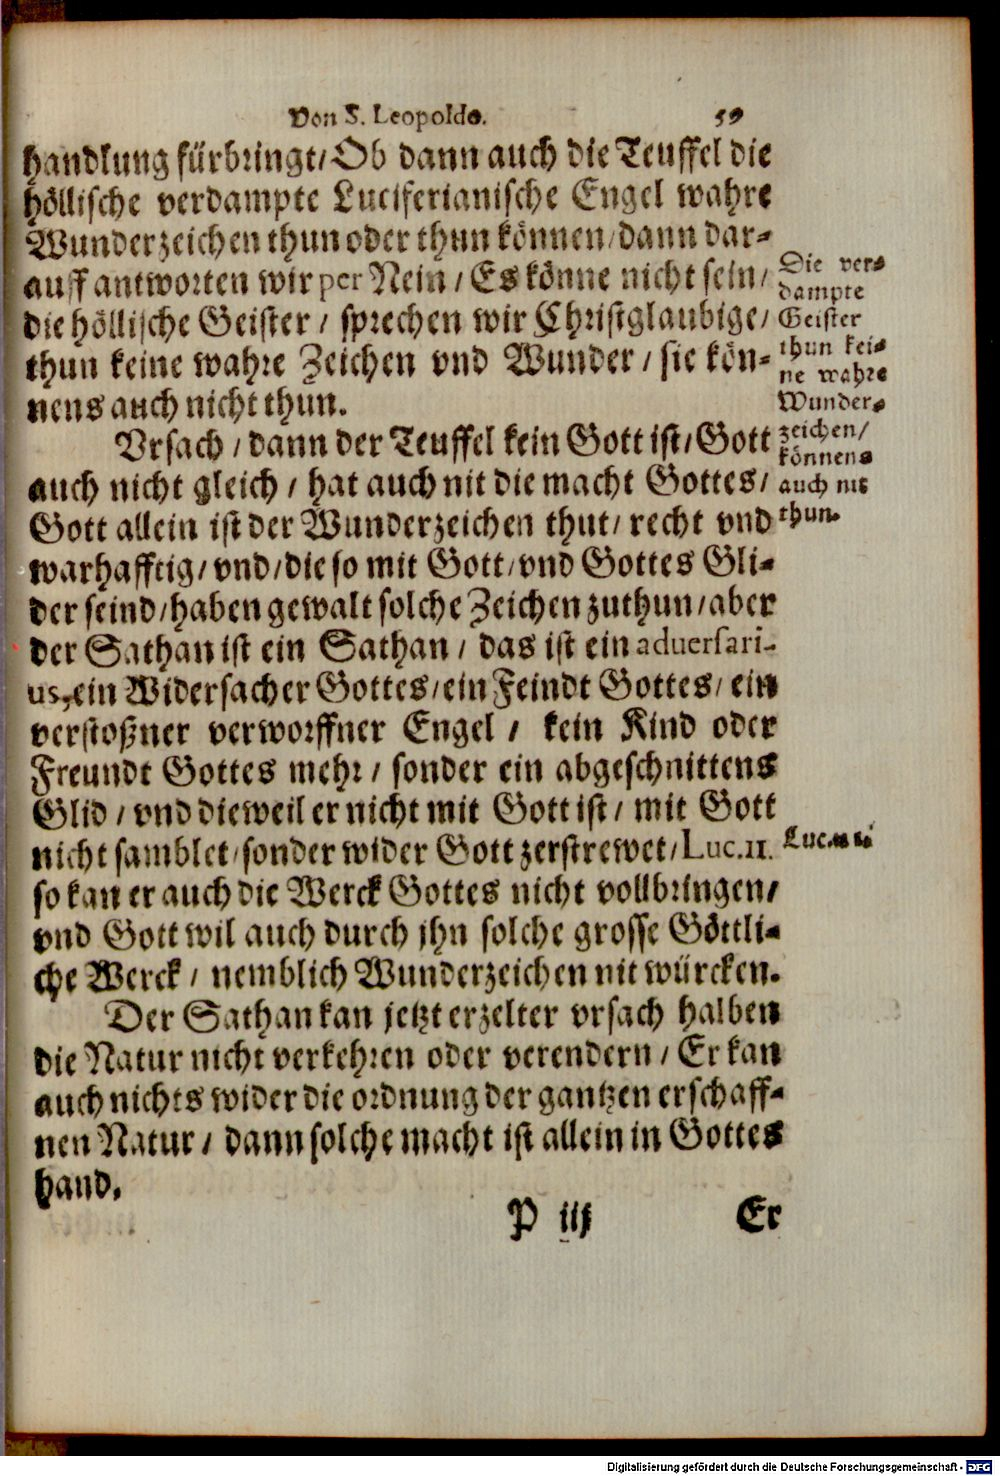 Von S. Leopoldo. 59
handlung fürbringt/ Ob dann auch die Teuffel die
höllische verdampte Luciferianische Engel wahre
Wunderzeichen thun oder thun können/ dann dar-
auff antworten wir per Nein/ Es könne nicht sein/
die höllische Geister/ sprechen wir Christglaubige/
thun keine wahre Zeichen vnd Wunder/ sie kön-
nens auch nicht thun.
Die ver-
dampte
Geister
thun kei-
ne wahre
Wunder-
zeichen/
könnens
auch nit
thun.
Vrsach/ dann der Teuffel kein Gott ist/ Gott
auch nicht gleich/ hat auch nit die macht Gottes/
Gott allein ist der Wunderzeichen thut/ recht vnd
warhafftig/ vnd/ die so mit Gott/ vnd Gottes Gli-
der seind/ haben gewalt solche Zeichen zuthun/ aber
der Sathan ist ein Sathan/ das ist ein aduersari-
us, ein Widersacher Gottes/ ein Feindt Gottes/ ein
verstoßner verworffner Engel/ kein Kind oder
Freundt Gottes mehr/ sonder ein abgeschnittens
Glid/ vnd dieweil er nicht mit Gott ist/ mit Gott
nicht samblet/ sonder wider Gott zerstrewet/ Luc. 11.
Luc. 11.
so kan er auch die Werck Gottes nicht vollbringen/
vnd Gott wil auch durch jhn solche grosse Göttli-
che Werck/ nemblich Wunderzeichen nit würcken.
Der Sathan kan jetzt erzelter vrsach halben
die Natur nicht verkehren oder verendern/ Er kan
auch nichts wider die ordnung der gantzen erschaff-
nen Natur/ dann solche macht ist allein in Gottes
hand.
P iij Er
Digitalisierung gefördert durch die Deutsche Forschungsgemeinschaft - DFG